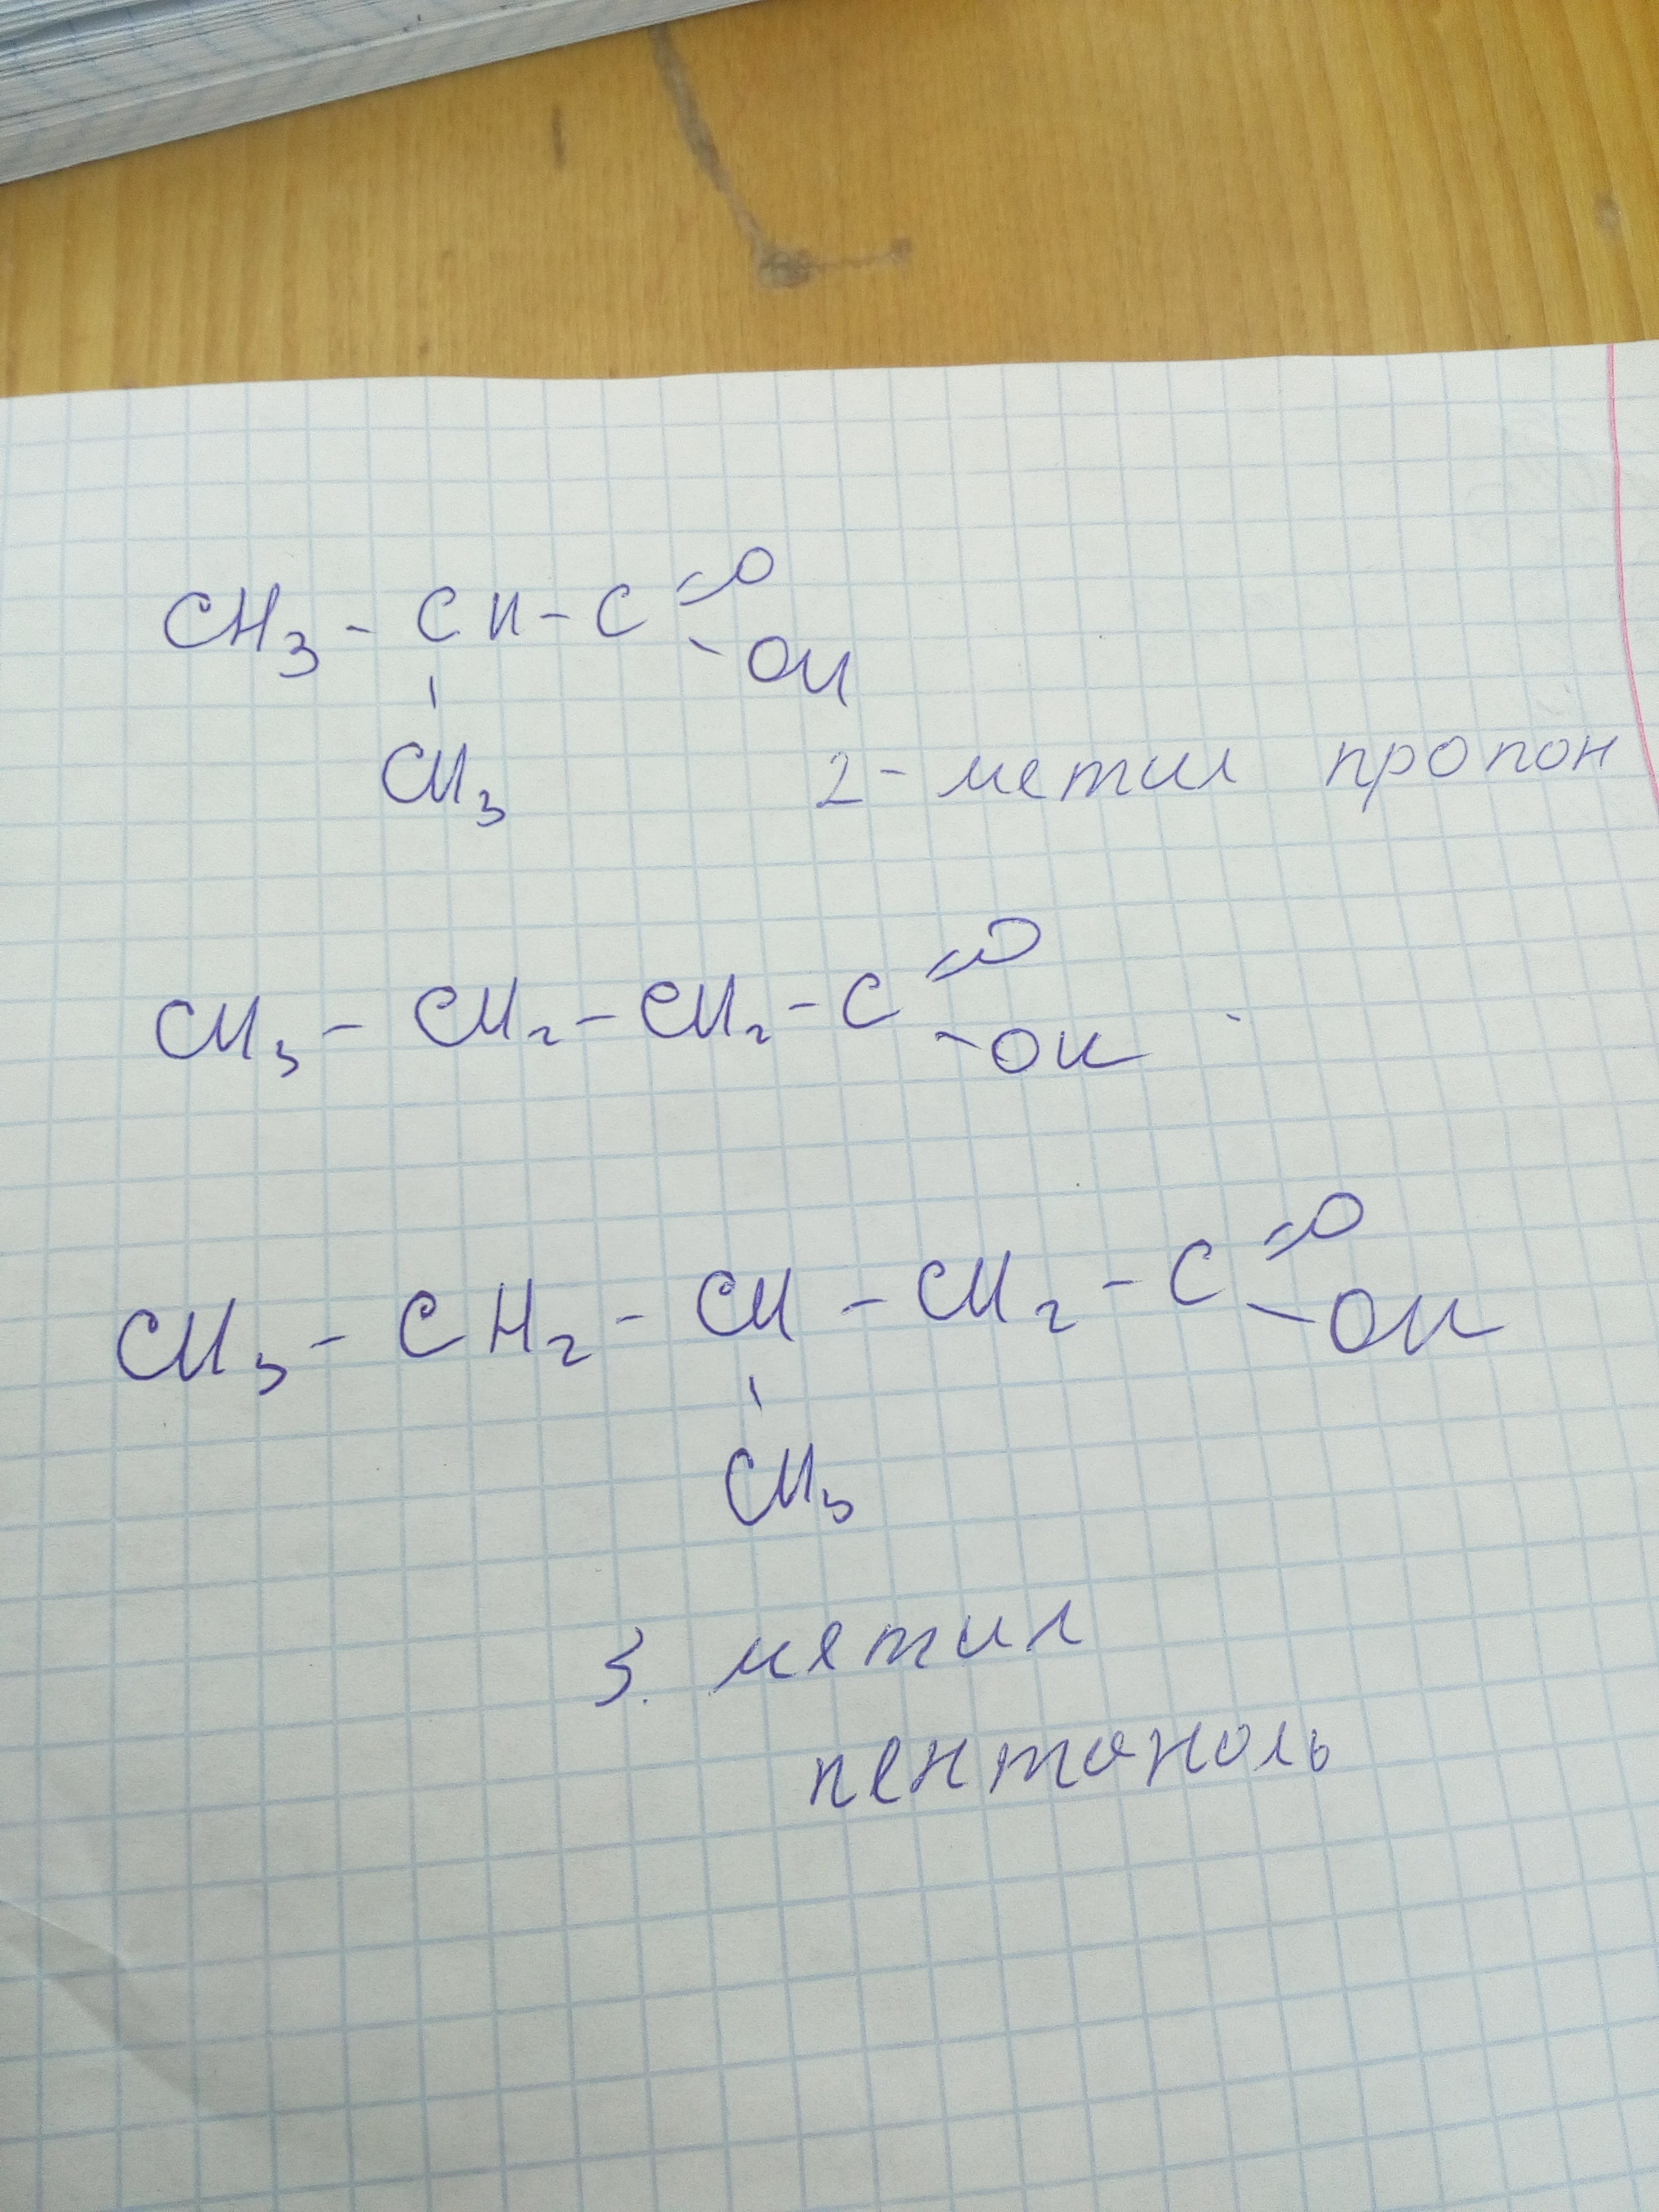 CH₃ - CH - C =O
- OH
CH₃
2 - метил пропон
CH₃ - CH₂ - CH₂ - C =O
- OH
CH₃ - CH₂ - CH - CH₂ - C =O
- OH
CH₃
3. метил
пентоноль